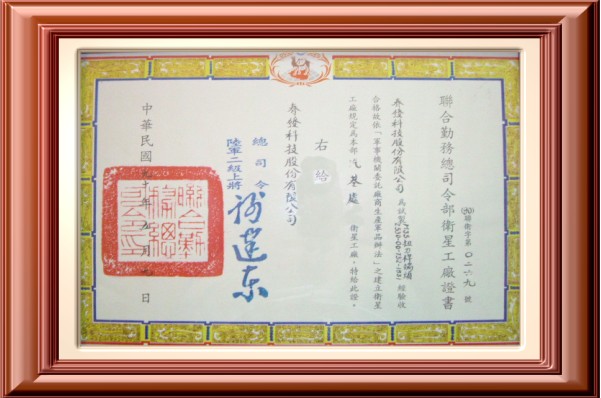 聯合勤務總司令部衛星工廠證書
(90)聯衛字第〇二六九號
春發科技股份有限公司 為試製 經驗收
合格茲依「軍事機關委託廠商生產軍品辦法」之建立衛星
工廠規定為本部汽基處 衛星工廠,特給此證。
右給
春發科技股份有限公司
總司令
陸軍二級上將
中華民國九十年九月 日